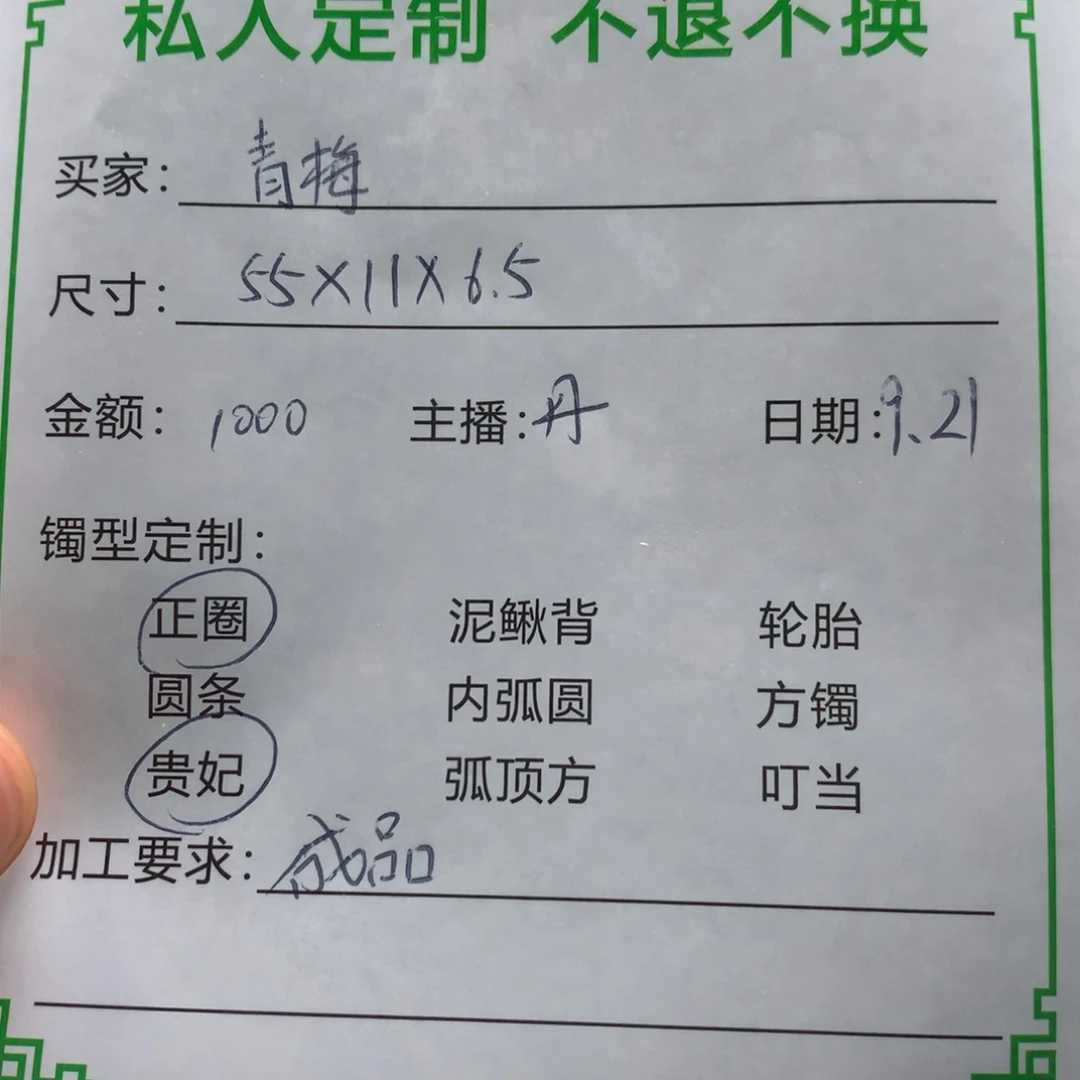 私人定制 不退不换
买家: 青梅
尺寸: 55×11×6.5
金额: 1000 主播: 丹 日期: 9.21
镯型定制:
正圈 泥鳅背 轮胎
圆条 内弧圆 方镯
贵妃 弧顶方 叮当
加工要求: 成品